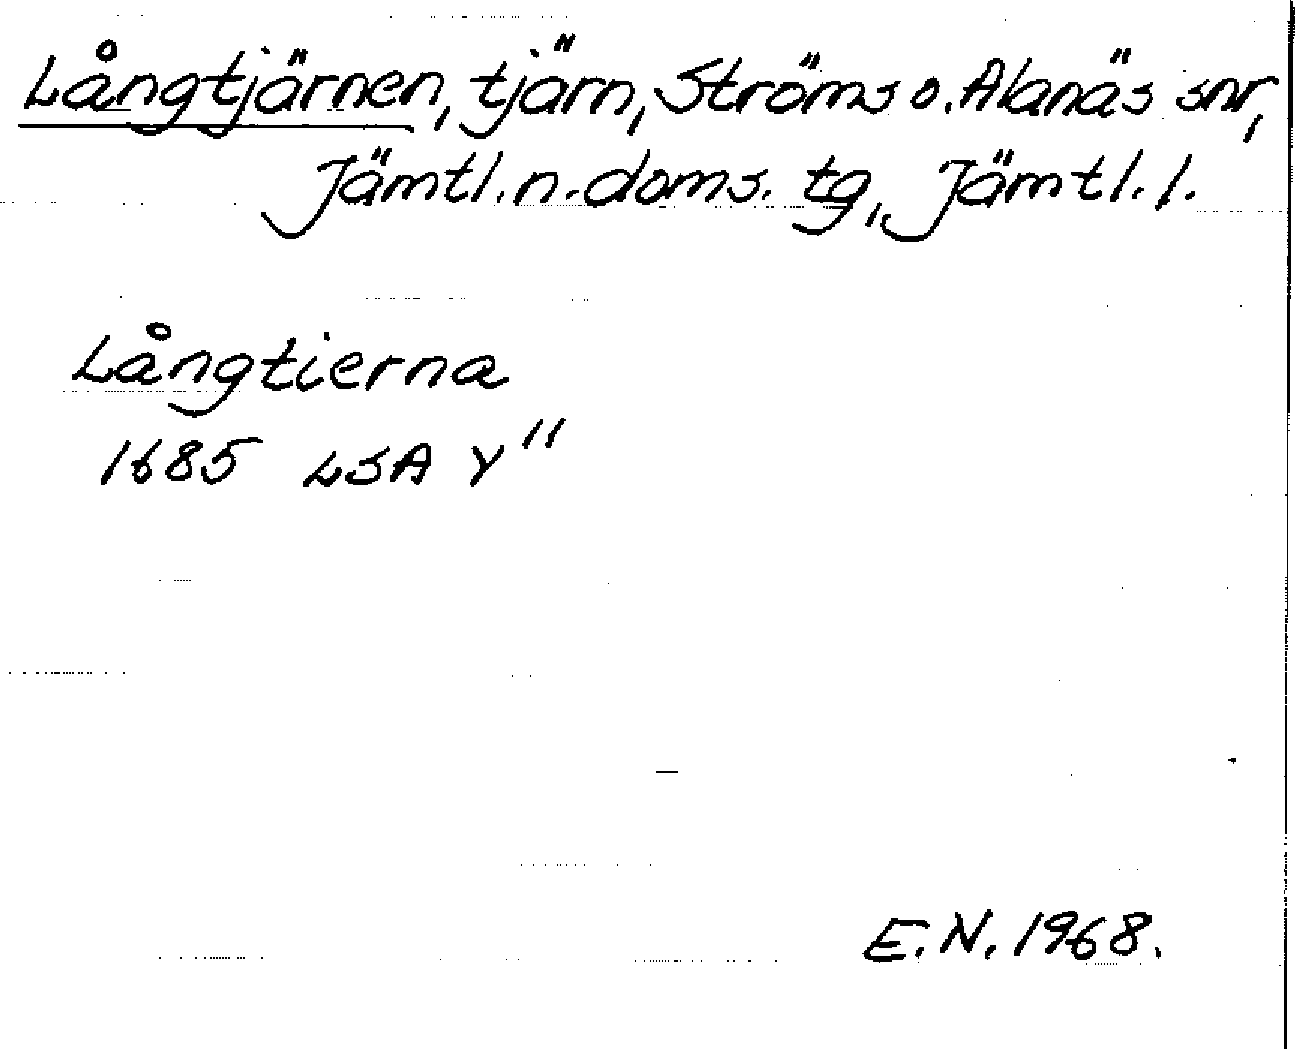 Långtjärnen, tjärn, Ströms o. Alanäs snr,
Jämtl. n. doms. tg, Jämtl. l.
Långtierna
1685 LSA Y"
E.N. 1968.